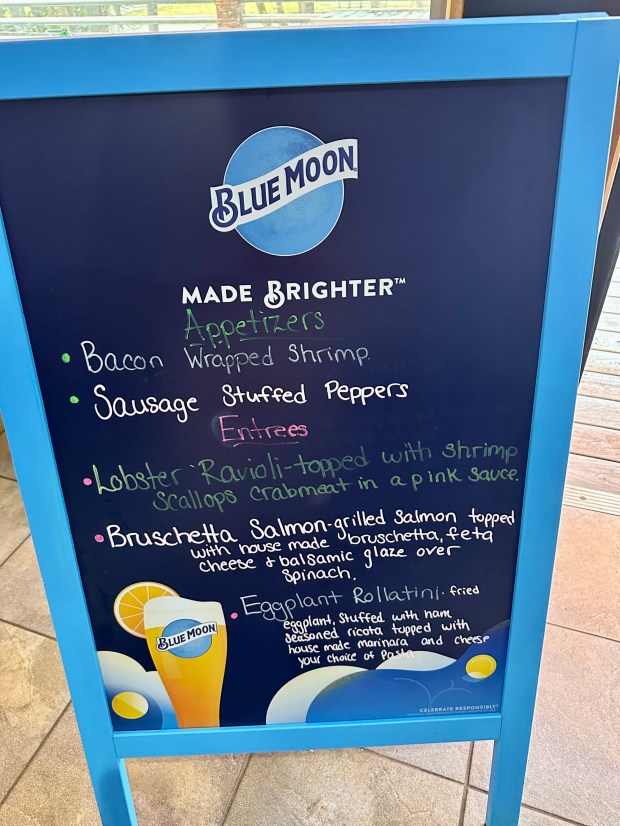 BLUE MOON
MADE BRIGHTER™
Appetizers
• Bacon Wrapped Shrimp.
• Sausage Stuffed Peppers
Entrees
• Lobster Ravioli-topped with shrimp
scallops crabmeat in a pink sauce.
• Bruschetta Salmon-grilled Salmon topped
with house made bruschetta, feta
cheese + balsamic glaze over
Spinach.
• Eggplant Rollatini. fried
eggplant, Stuffed with ham
seasoned ricota topped with
house made marinara and cheese
your choice of Pasta
BLUE MOON
CELEBRATE RESPONSIBLY